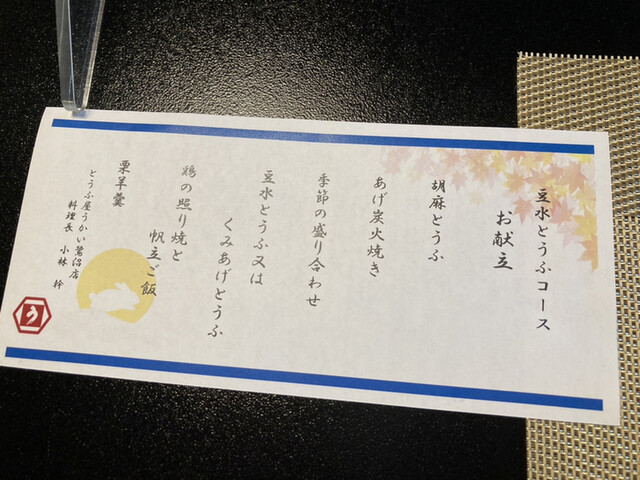 豆水とうふコース
お献立
胡麻とうふ
あげ炭火焼き
季節の盛り合わせ
豆水とうふ又は
くみあげとうふ
鶏の照り焼と
帆立ご飯
栗羊羹
とうふ屋うかい鷺沼店
料理長 小林 幹
う